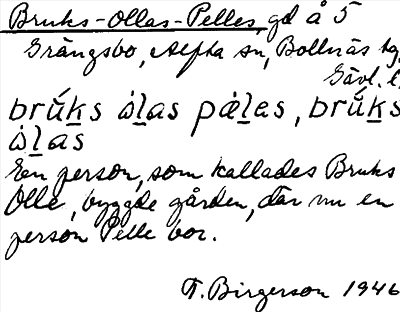 Bruks-Ollas-Pelles, gd å 5
Grängsbo, Alfta sn, Bollnäs tg,
Gävl. l.
brúks òlas pæ̀les, brúks
òlas
En person, som kallades Bruks
Olle, byggde gården, där nu en
person Pelle bor.
F. Birgerson 1946